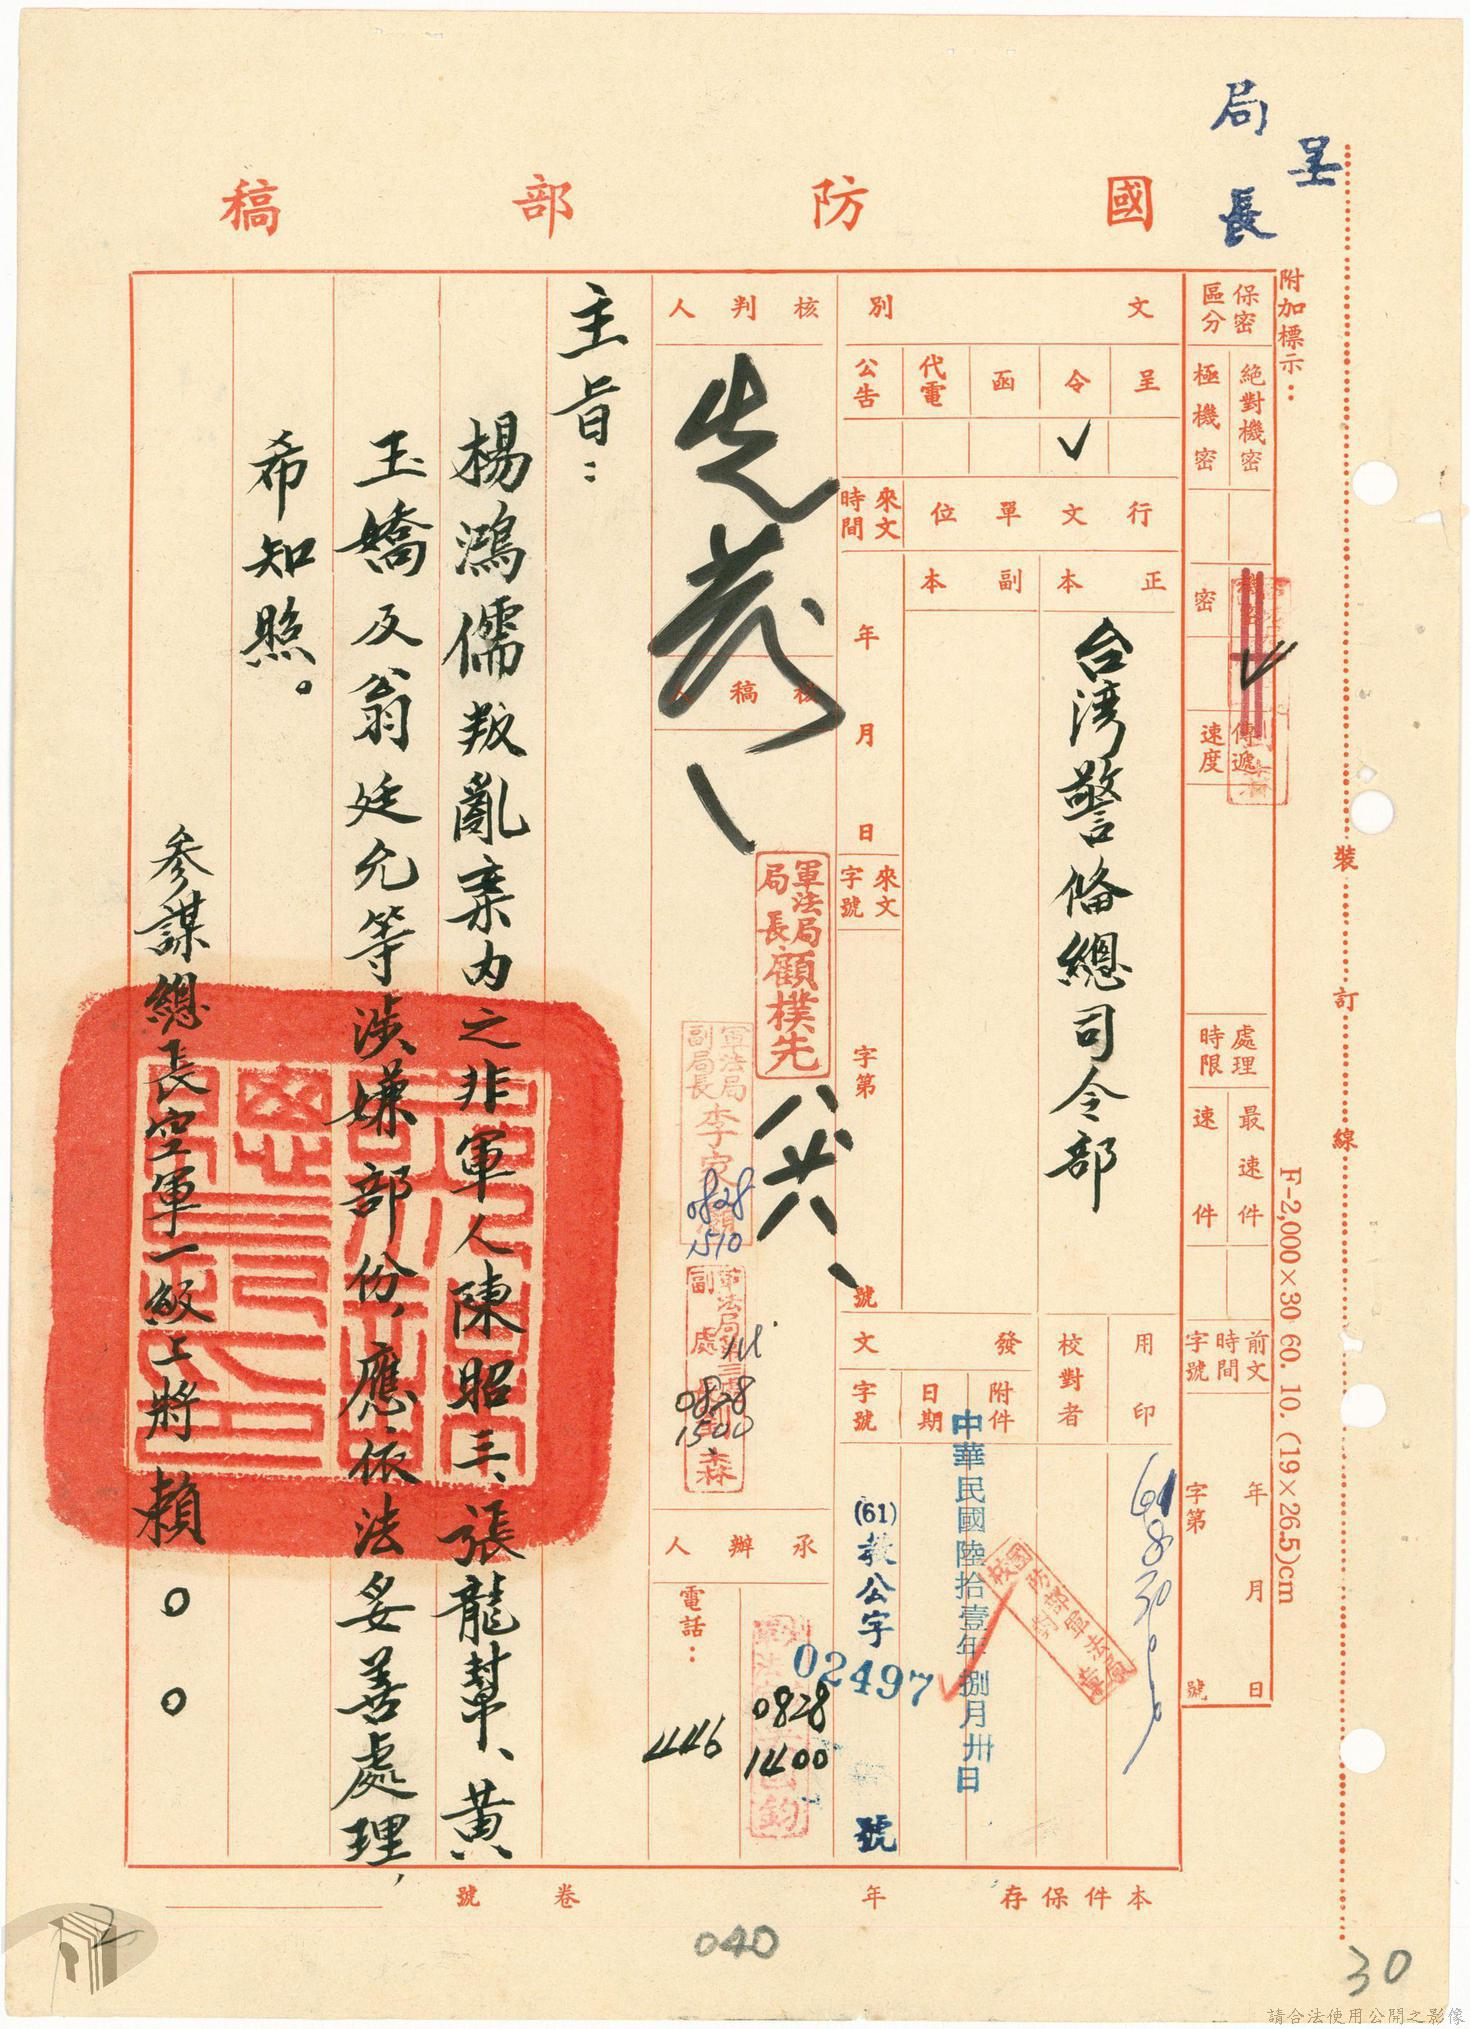 局長
呈
國防部稿
附加標示：
保密區分
絕對機密
極機密
密
傳遞速度
處理時限
最速件
速件
前文時間字號
年月日
字第號
F-2,000×30 60. 10. (19×26.5)cm
裝訂線
文別
呈
令
函
代電
公告
✓
行文單位
正本
副本
台湾警俻總司令部
來文時間
年月日
來文字號
字第號
用印
校對者
發文
附件
日期
字號
中華民國陸拾壹年捌月卅日
(61)教公字
02497
號
國防部軍法局校對章
核判人
核稿人
軍法局局長顧樸先
軍法局副局長李
0828
1510
0828
1500
承辦人
電話：
446
0828
1400
主旨：
楊鴻儒叛亂案內之非軍人陳昭三、張龍幫、黃
玉嬌及翁廷允等涉嫌部份，應依法妥善處理，
希知照。
參謀總長空軍一級上將賴○○
本件保存
年
卷
號
040
30
請合法使用公開之影像